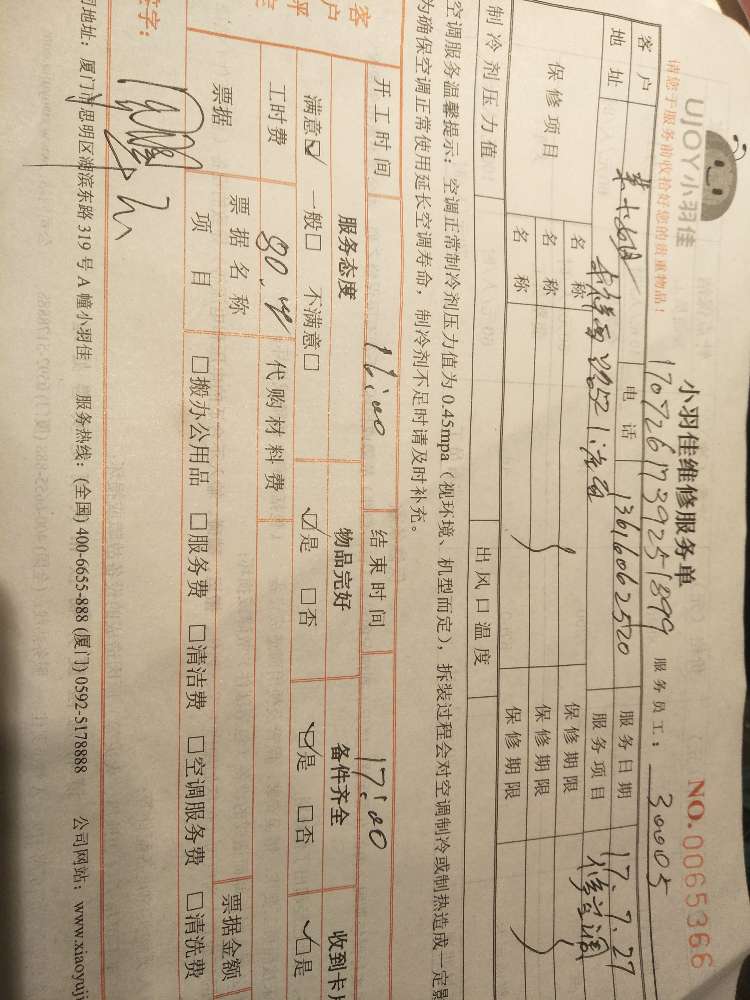 UJOY小羽佳
小羽佳维修服务单
NO.0065366
请您于服务前收拾好您的贵重物品!
1707261739251899
服务员工: 30005
客户
电话 13616062520
服务日期 17.7.27
地址
服务项目
保修项目
名称 保修期限
名称 保修期限
名称 保修期限
制冷剂压力值 出风口温度
空调服务温馨提示: 空调正常制冷剂压力值为 0.45mpa（视环境、机型而定），拆装过程会对空调制冷或制热造成一定影
为确保空调正常使用延长空调寿命，制冷剂不足时请及时补充。
开工时间 16:00 结束时间 17:00
服务态度 物品完好 备件齐全 收到卡片
满意☑ 一般□ 不满意□ ☑是 □否 ☑是 □否 ☑是
工时费 代购材料费
票据 票据名称 票据金额
项目 □搬办公用品 □服务费 □清洁费 □空调服务费 □清洗费
签字:
司地址: 厦门市思明区湖滨东路 319 号 A 幢小羽佳 服务热线: (全国) 400-6655-888 (厦门) 0592-5178888 公司网站: www.xiaoyuji